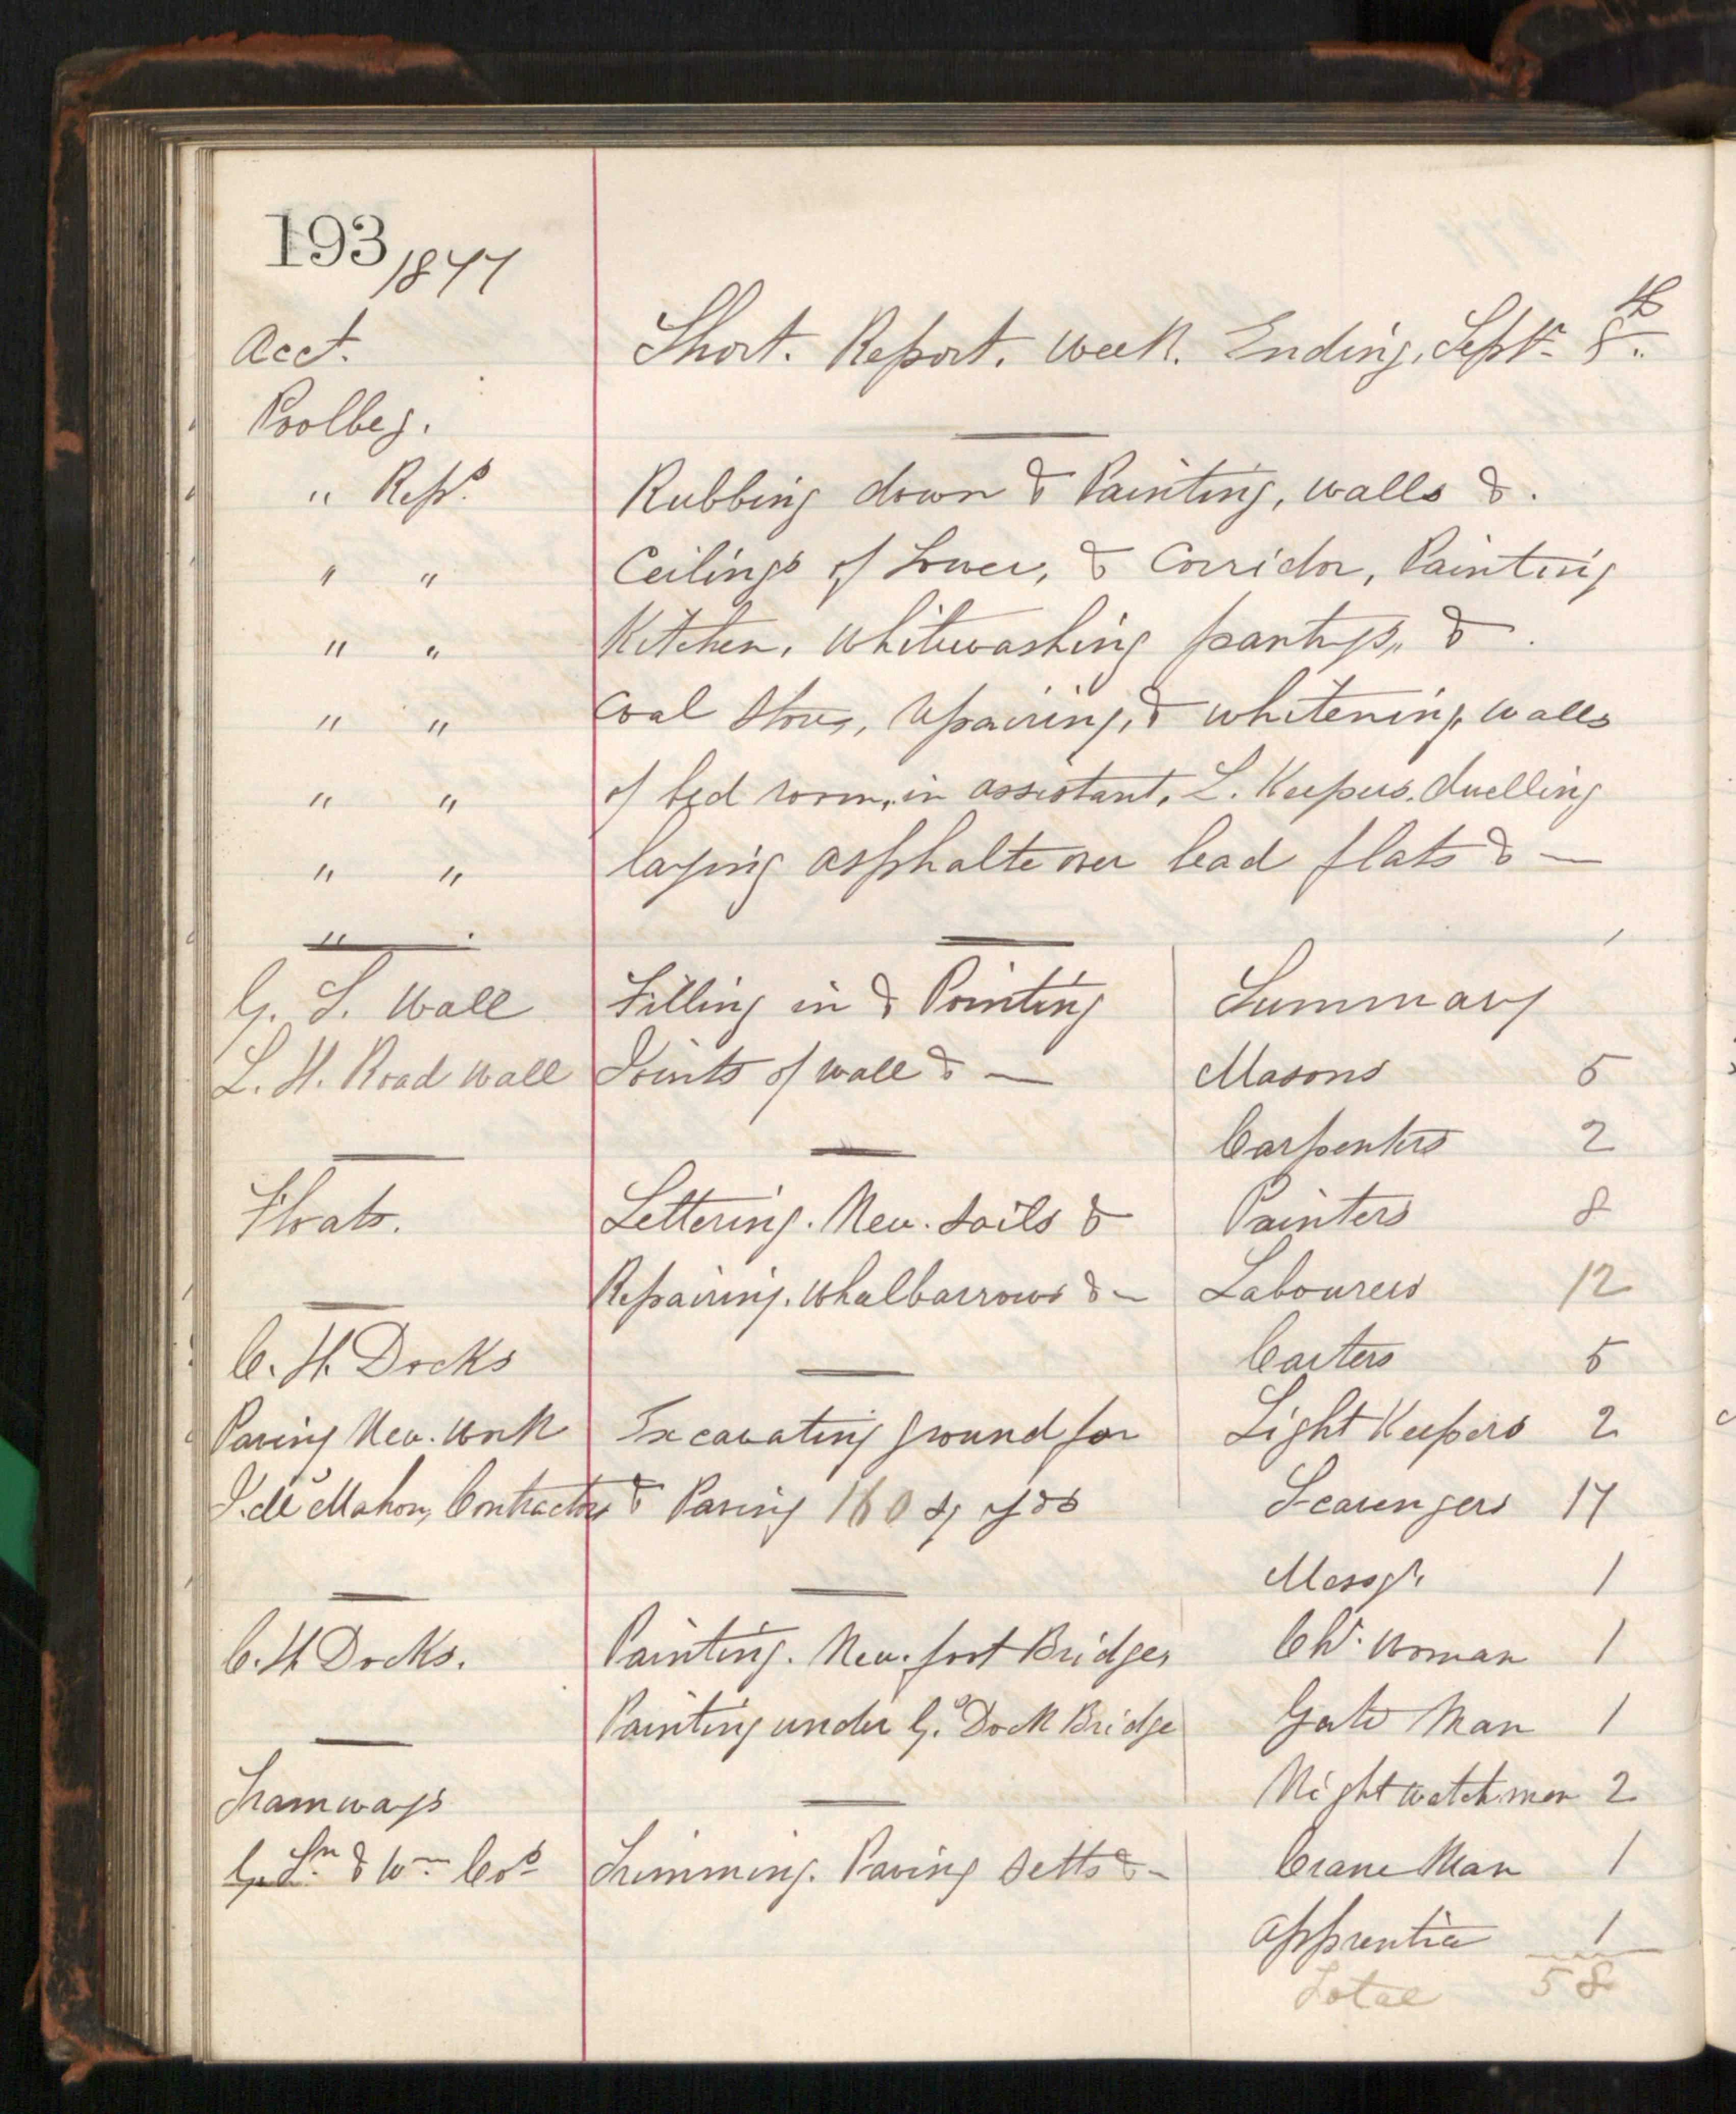 193 1877
Acct. Short. Report. Week. Ending, Septr. 8th.
Poolbeg.
" Reps. Rubbing down & Painting, walls &.
" " Ceilings of Tower, & Corridor, Painting
" " Kitchen, Whitewashing pantrys, &.
" " Coal Stores, repairing, & whitening walls
" " of bed room, in assistant, L. Keepers. dwelling
" " laying asphalte over lead flats & —
"
G. S. Wall Filling in & Pointing
L. H. Road Wall Joints of wall & —
Floats. Lettering. New. Sails &
Repairing. Whelbarrows & —
C. H. Docks
Paving New. Work Excavating ground for
J. Mc Mahon, Contractor & Paving 160 sq yds
C. H Docks. Painting. New. foot Bridges,
Painting under Go. Dock Bridge
Tramways
G. Sn & Wn Cos Trimming. Paving Setts & -
Summary
Masons 5
Carpenters 2
Painters 8
Labourers 12
Carters 5
Light Keepers 2
Scavengers 17
Messgr. 1
Chr. Woman 1
Gate Man 1
Night watchmen 2
Crane Man 1
apprentice 1
Total 58